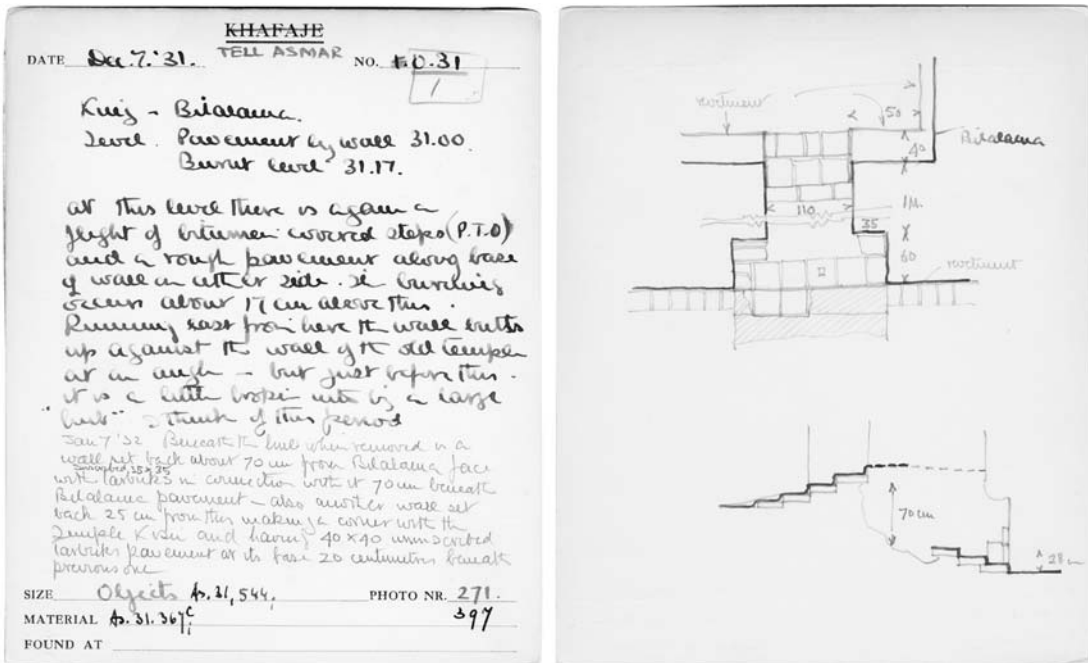 KHAFAJE
TELL ASMAR
DATE Dec. 7. '31. NO. F.O.31
1
King - Bilalama.
Level. Pavement by wall 31.00.
Burnt level 31.17.
At this level there is again a
flight of bitumen covered steps (P.T.O)
and a rough pavement along base
of wall on either side. The burning
occurs about 17 cm above this.
Running east from here the wall butts
up against the wall of the old temple
at an angle - but just before this.
it is a little broken into by a large
" " I think of this period
Jan 7 '32 Beneath the when removed is a
wall set back about 70 cm from Bilalama face
35 x 35
with tarbricks in connection with it 70 cm beneath
Bilalama pavement - also another wall set
back 25 cm from this making a corner with the
Temple and having 40 x 40 uninscribed
tarbricks pavement at its base 20 centimetres beneath
previous one
SIZE Objects As. 31, 544, PHOTO NR. 271.
MATERIAL As. 31. 367 397
FOUND AT
revetment
50
Bilalama
40
1 M.
110
35
60
revetment
70 cm
28